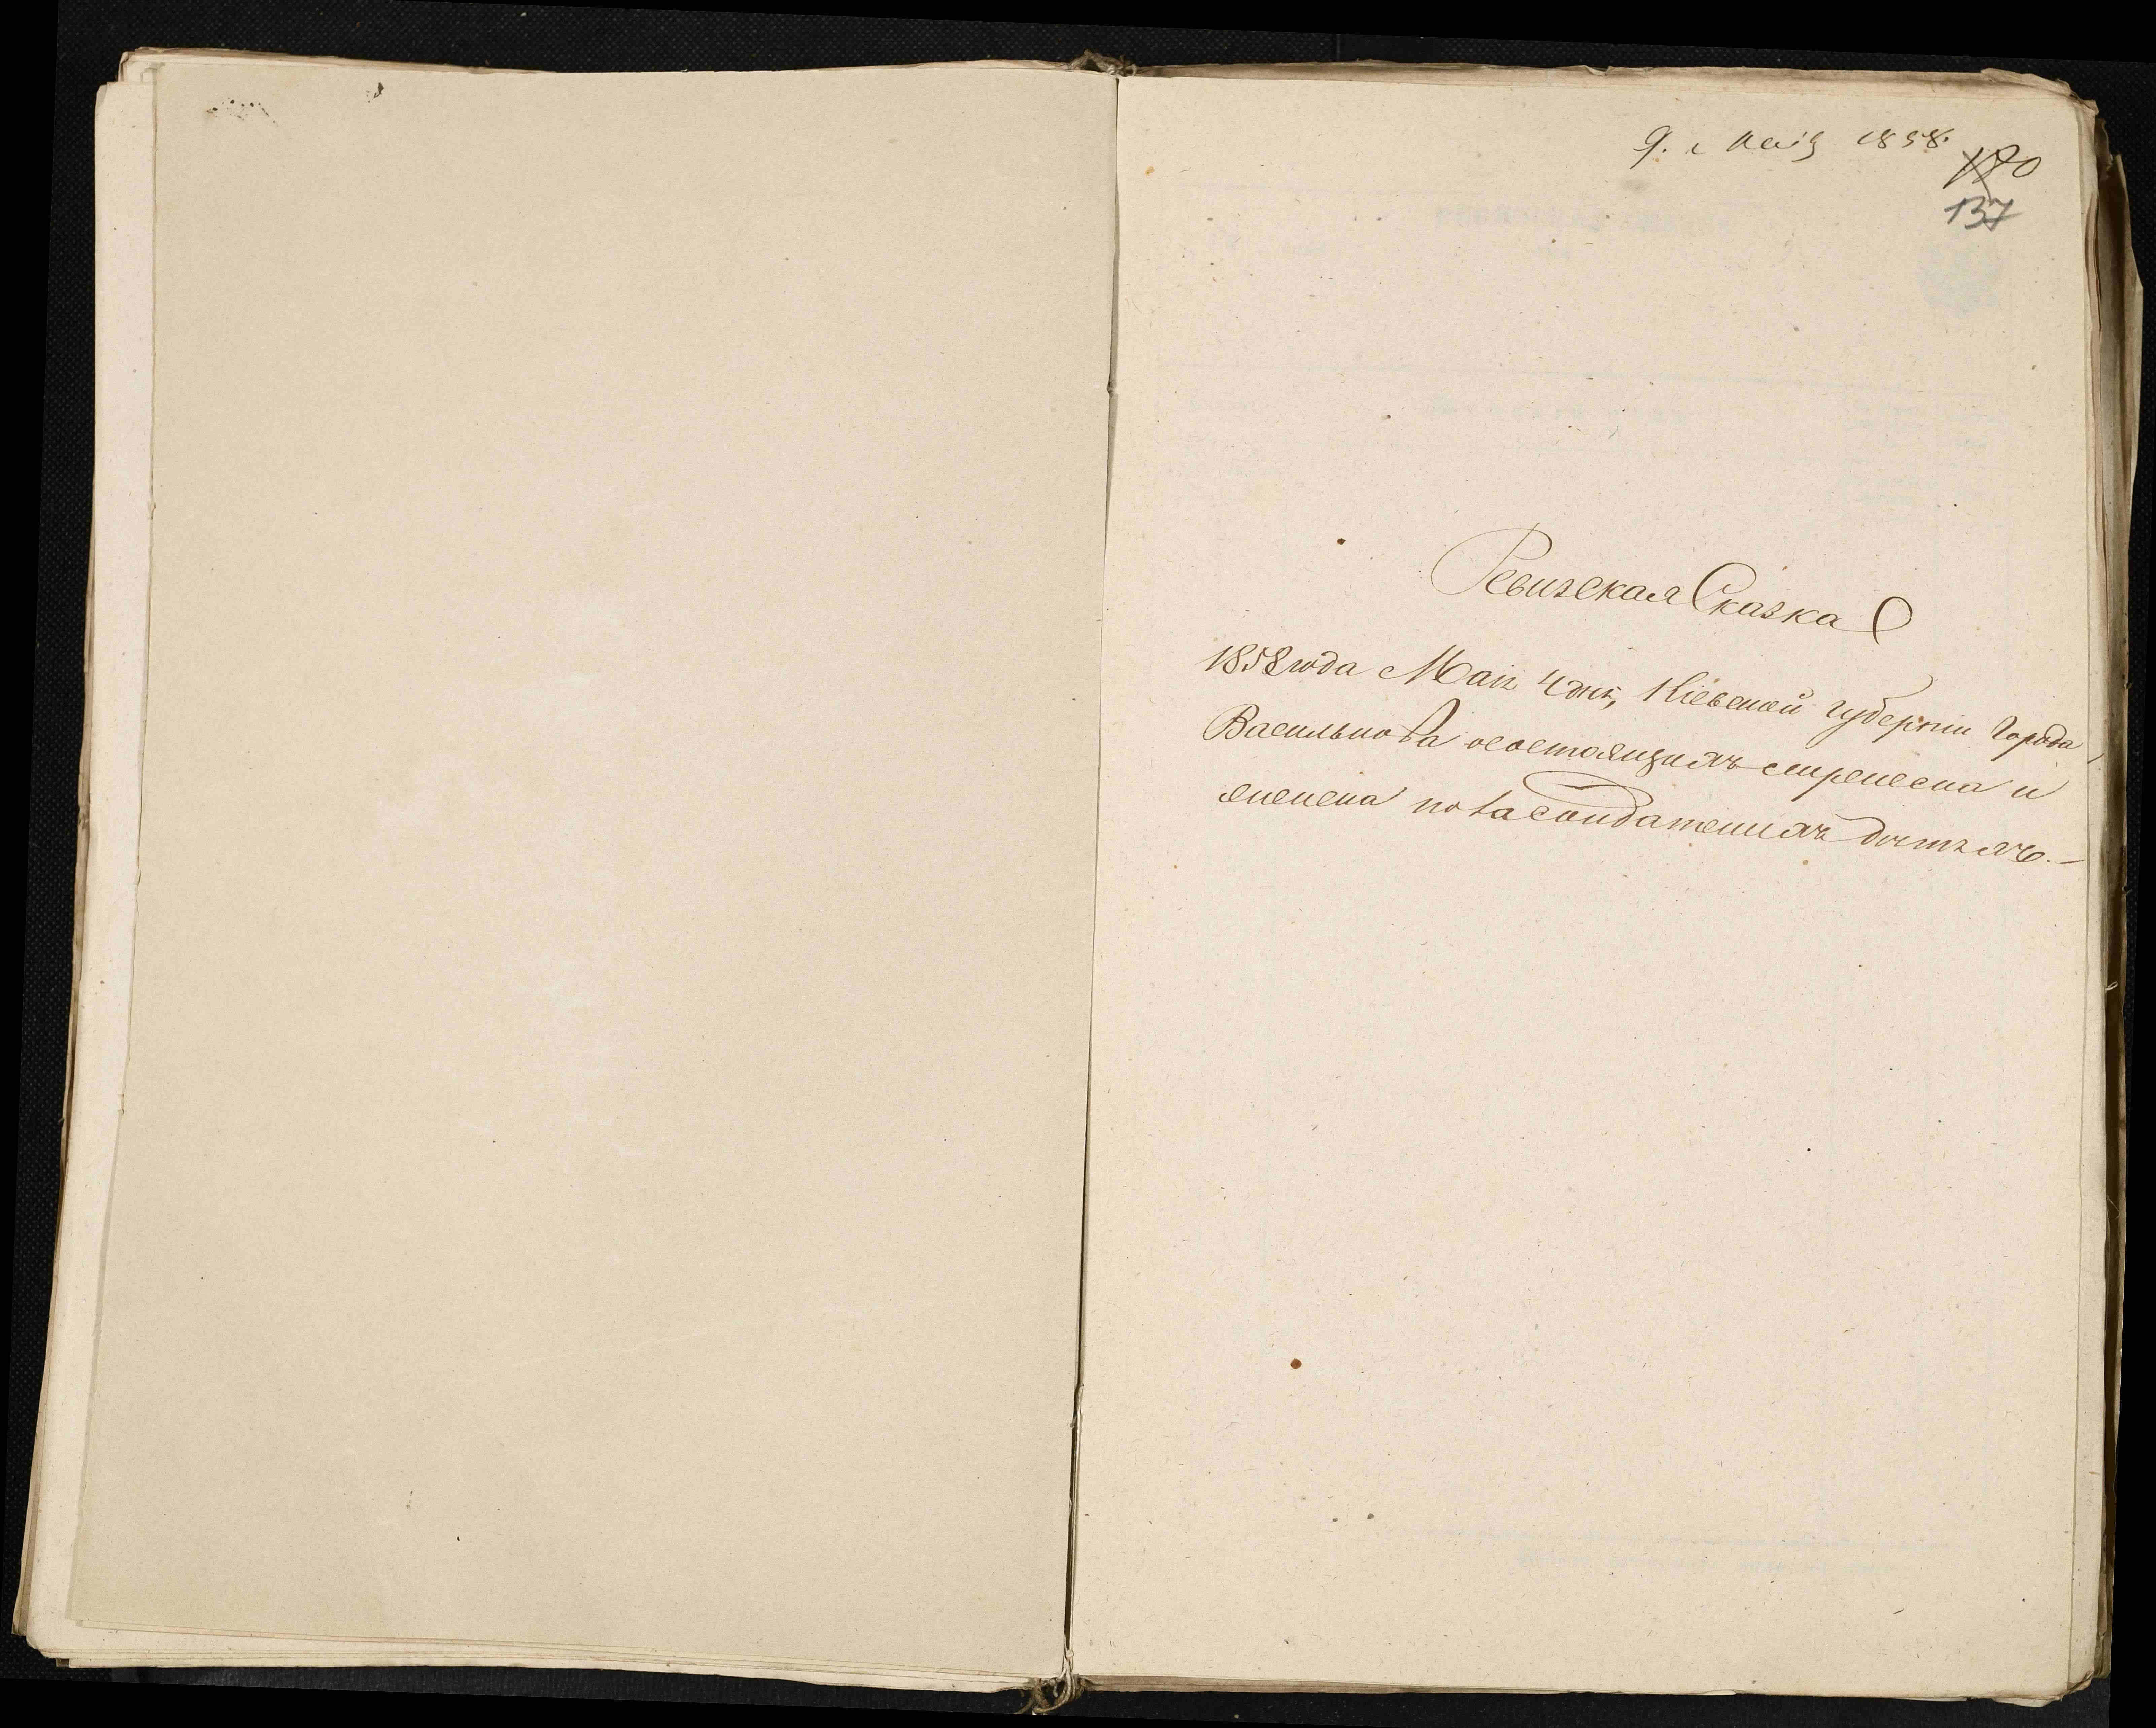 9. Маія 1858.
180
137
Ревизская Сказка
1858 года Маія 4 дня, Кіевской губерніи Города
Василькова о состоящихъ мужеска и
женска пола солдатскихъ дѣтяхъ.—